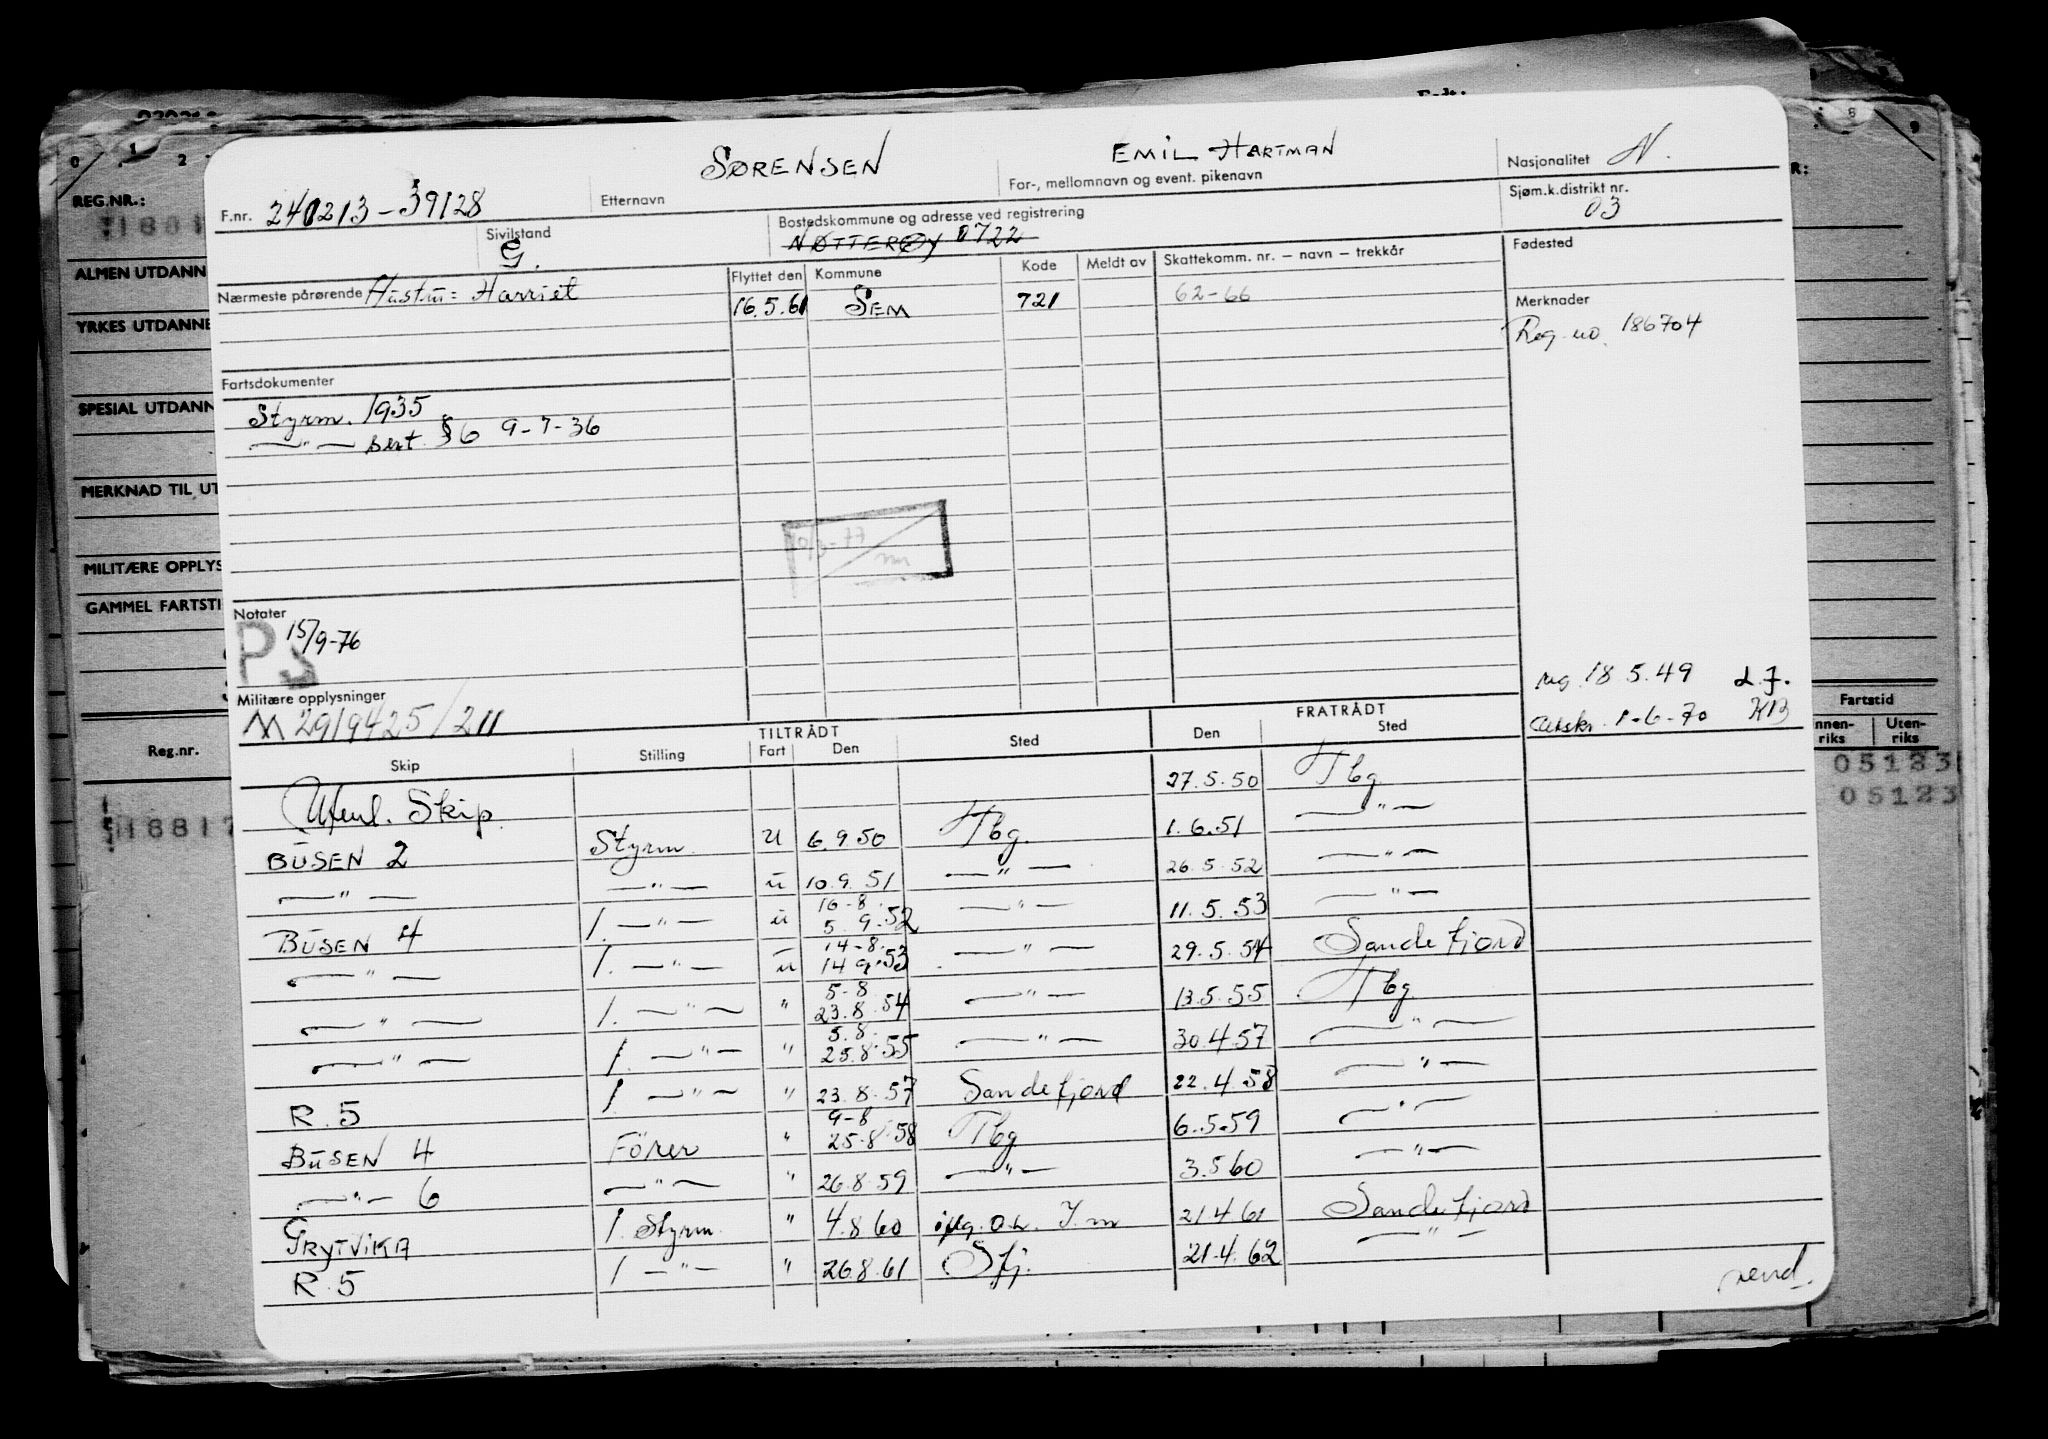 SØRENSEN
EMIL HARTMAN
Nasjonalitet N.
F.nr. 240213-39128
Etternavn
For-, mellomnavn og event. pikenavn
Sjøm.k.distrikt nr.
03
Sivilstand
G.
Bostedskommune og adresse ved registrering
NØTTERØY 0722
Fødested
Nærmeste pårørende Hustru: Harriet
Flyttet den Kommune Kode Meldt av Skattekomm. nr. – navn – trekkår
16.5.61 SEM 721 62-66
Merknader
Reg. no. 186704
Fartsdokumenter
Styrm. 1935
—"— sert. §6 9-7-36
-77
Notater
PS 15/9-76
Militære opplysninger
M 2919425/211
reg. 18.5.49 L.J.
Utskr. 1-6-70 KB
TILTRÅDT FRATRÅDT
Skip Stilling Fart Den Sted Den Sted
Utenl. Skip. 27.5.50 Tbg
BUSEN 2 Styrm. u 6.9.50 Tbg. 1.6.51 —"—
—"— —"— u 10.9.51 —"— 26.5.52 —"—
16-8.
BUSEN 4 1. —"— u 5.9.52 —"— 11.5.53 —"—
14-8.
—"— 1. —"— u 14.9.53 —"— 29.5.54 Sandefjord
5-8.
—"— 1. —"— " 23.8.54 —"— 13.5.55 Tbg.
5.8.
—"— 1. —"— " 25.8.55 —"— 30.4.57 —"—
R.5 1. —"— " 23.8.57 Sandefjord 22.4.58 —"—
9-8
BUSEN 4 Förer " 25.8.58 Tbg 6.5.59 —"—
—"— 6 —"— " 26.8.59 —"— 3.5.60 —"—
GRYTVIKA 1. Styrm. " 4.8.60 21.4.61 Sandefjord
R.5 1 —"— " 26.8.61 Sfj. 21.4.62 —"—
vend.
0 1 2 8 9
REG.NR.:
ALMEN UTDANN
YRKES UTDANNE
SPESIAL UTDANN
MERKNAD TIL UT
MILITÆRE OPPLYS
GAMMEL FARTSTI
Reg.nr.
H8817
Fartstid
Innen-
riks
Uten-
riks
05123
05123